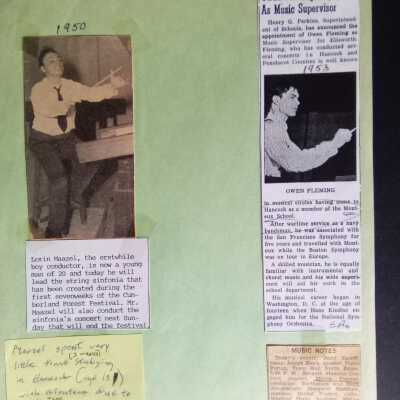 1950
Lorin Maazel, the erstwhile
boy conductor, is now a young
man of 20 and today he will
lead the string sinfonia that
has been created during the
first sevenweeks of the Cum-
berland Forest Festival. Mr.
Maazel will also conduct the
sinfonia's concert next Sun-
day that will end the festival.
Maazel spent very
(2 weeks)
little time studying
As Music Supervisor
Henry G. Perkins, Superintend-
ent of Schools, has announced the
appointment of Owen Fleming as
Music Supervisor for Ellsworth.
Fleming, who has conducted sev-
eral concerts in Hancock and
Penobscot Counties is well known
1953
OWEN FLEMING
in musical circles having come to
Hancock as a member of the Mont-
eux School.
After wartime service as a navy
bandsman, he was associated with
the San Francisco Symphony for
five years and travelled with Mont-
eux while the Boston Symphony
was on tour in Europe.
A skilled musician, he is equally
familiar with instrumental and
choral music and his wide exper-
ience will aid his work in the
school department.
His musical career began in
Washington, D. C. at the age of
fourteen when Hans Kindler en-
gaged him for the National Sym-
phony Orchestra.
MUSIC NOTES